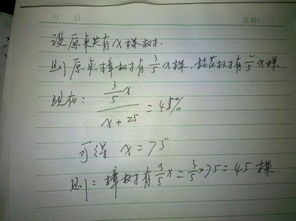 设原来共有x棵树.
则原来樟树有3/5x棵, 桂花树有2/5x棵.
现在: (3/5x)/(x+25) = 45%
可得 x = 75
则: 樟树有3/5x = 3/5×75 = 45棵.